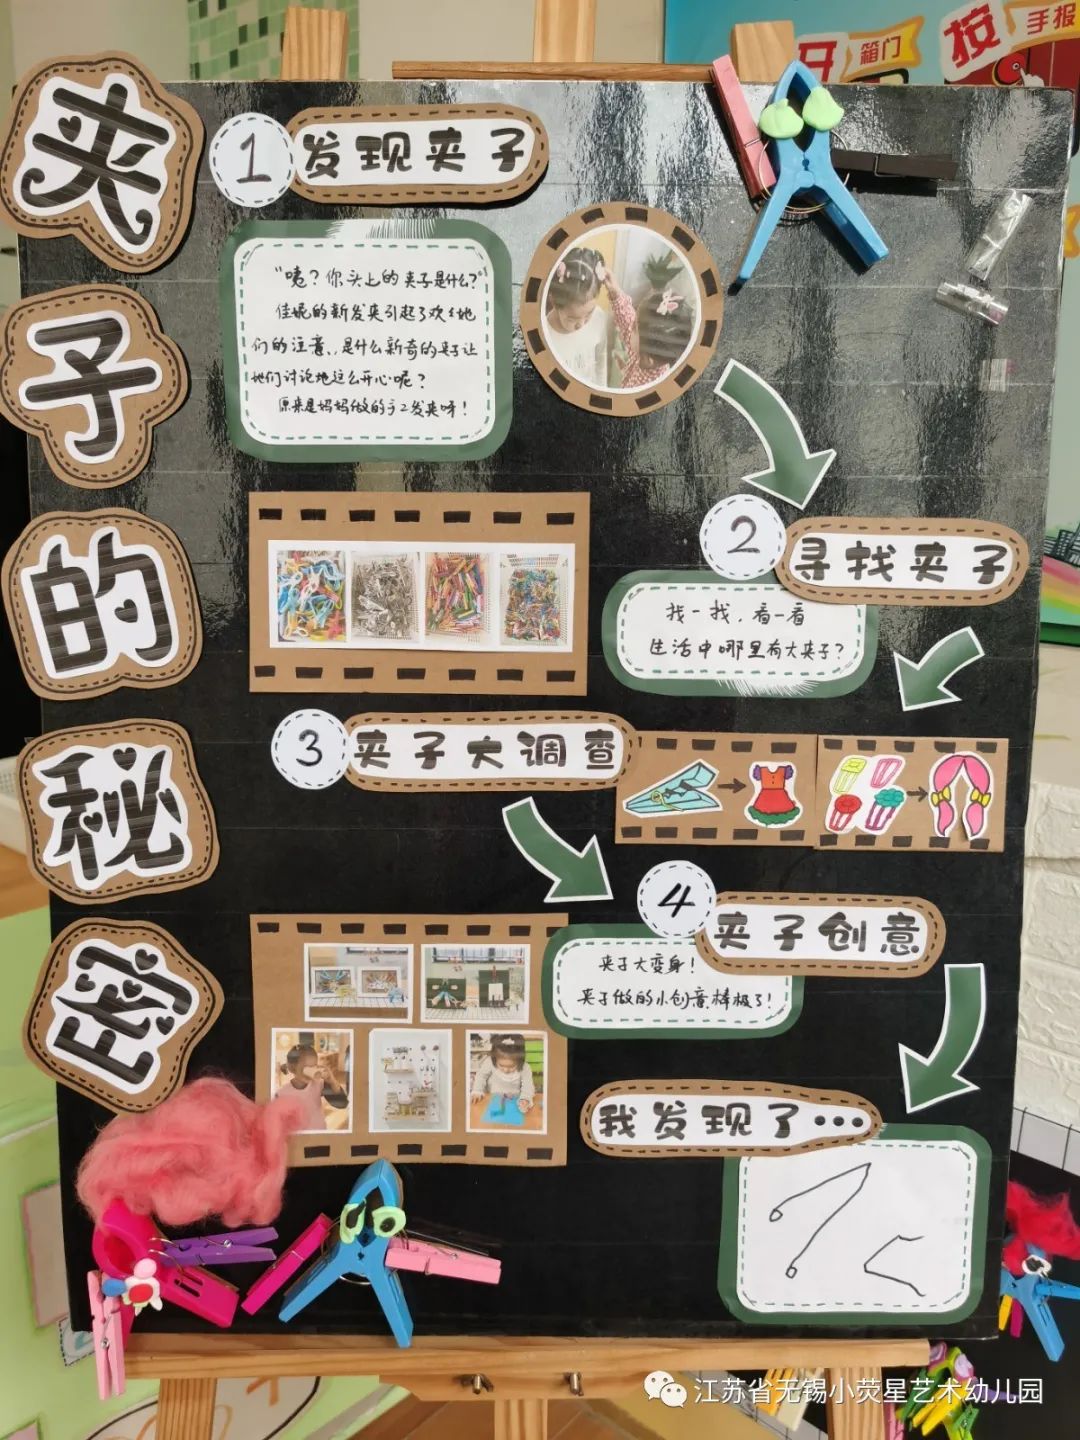 夹子的秘密
1 发现夹子
"咦？你头上的夹子是什么？"
佳妮的新发夹引起了欢欢地
们的注意，是什么新奇的夹子让
她们讨论地这么开心呢？
原来是妈妈做的手工发夹呀！
2 寻找夹子
找一找，看一看
生活中哪里有大夹子？
3 夹子大调查
4 夹子创意
夹子大变身！
夹子做的小创意棒极了！
我发现了...
箱门
按 手报
江苏省无锡小荧星艺术幼儿园